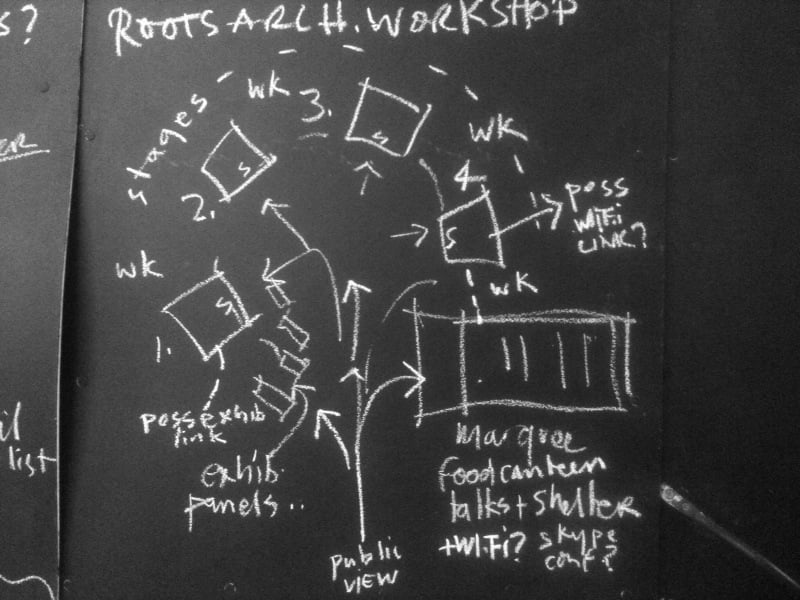 S?
ROOTSARCH.WORKSHOP
ER
stages
wk
3.
S
wk
2.
S
4
S
poss
WIFI
LINK?
wk
wk
1.
S
poss exhib
link
exhib.
panels..
il
list
Marqree
food canteen
talks + Shelter
+WIFI? skype
conf?
public
VIEW